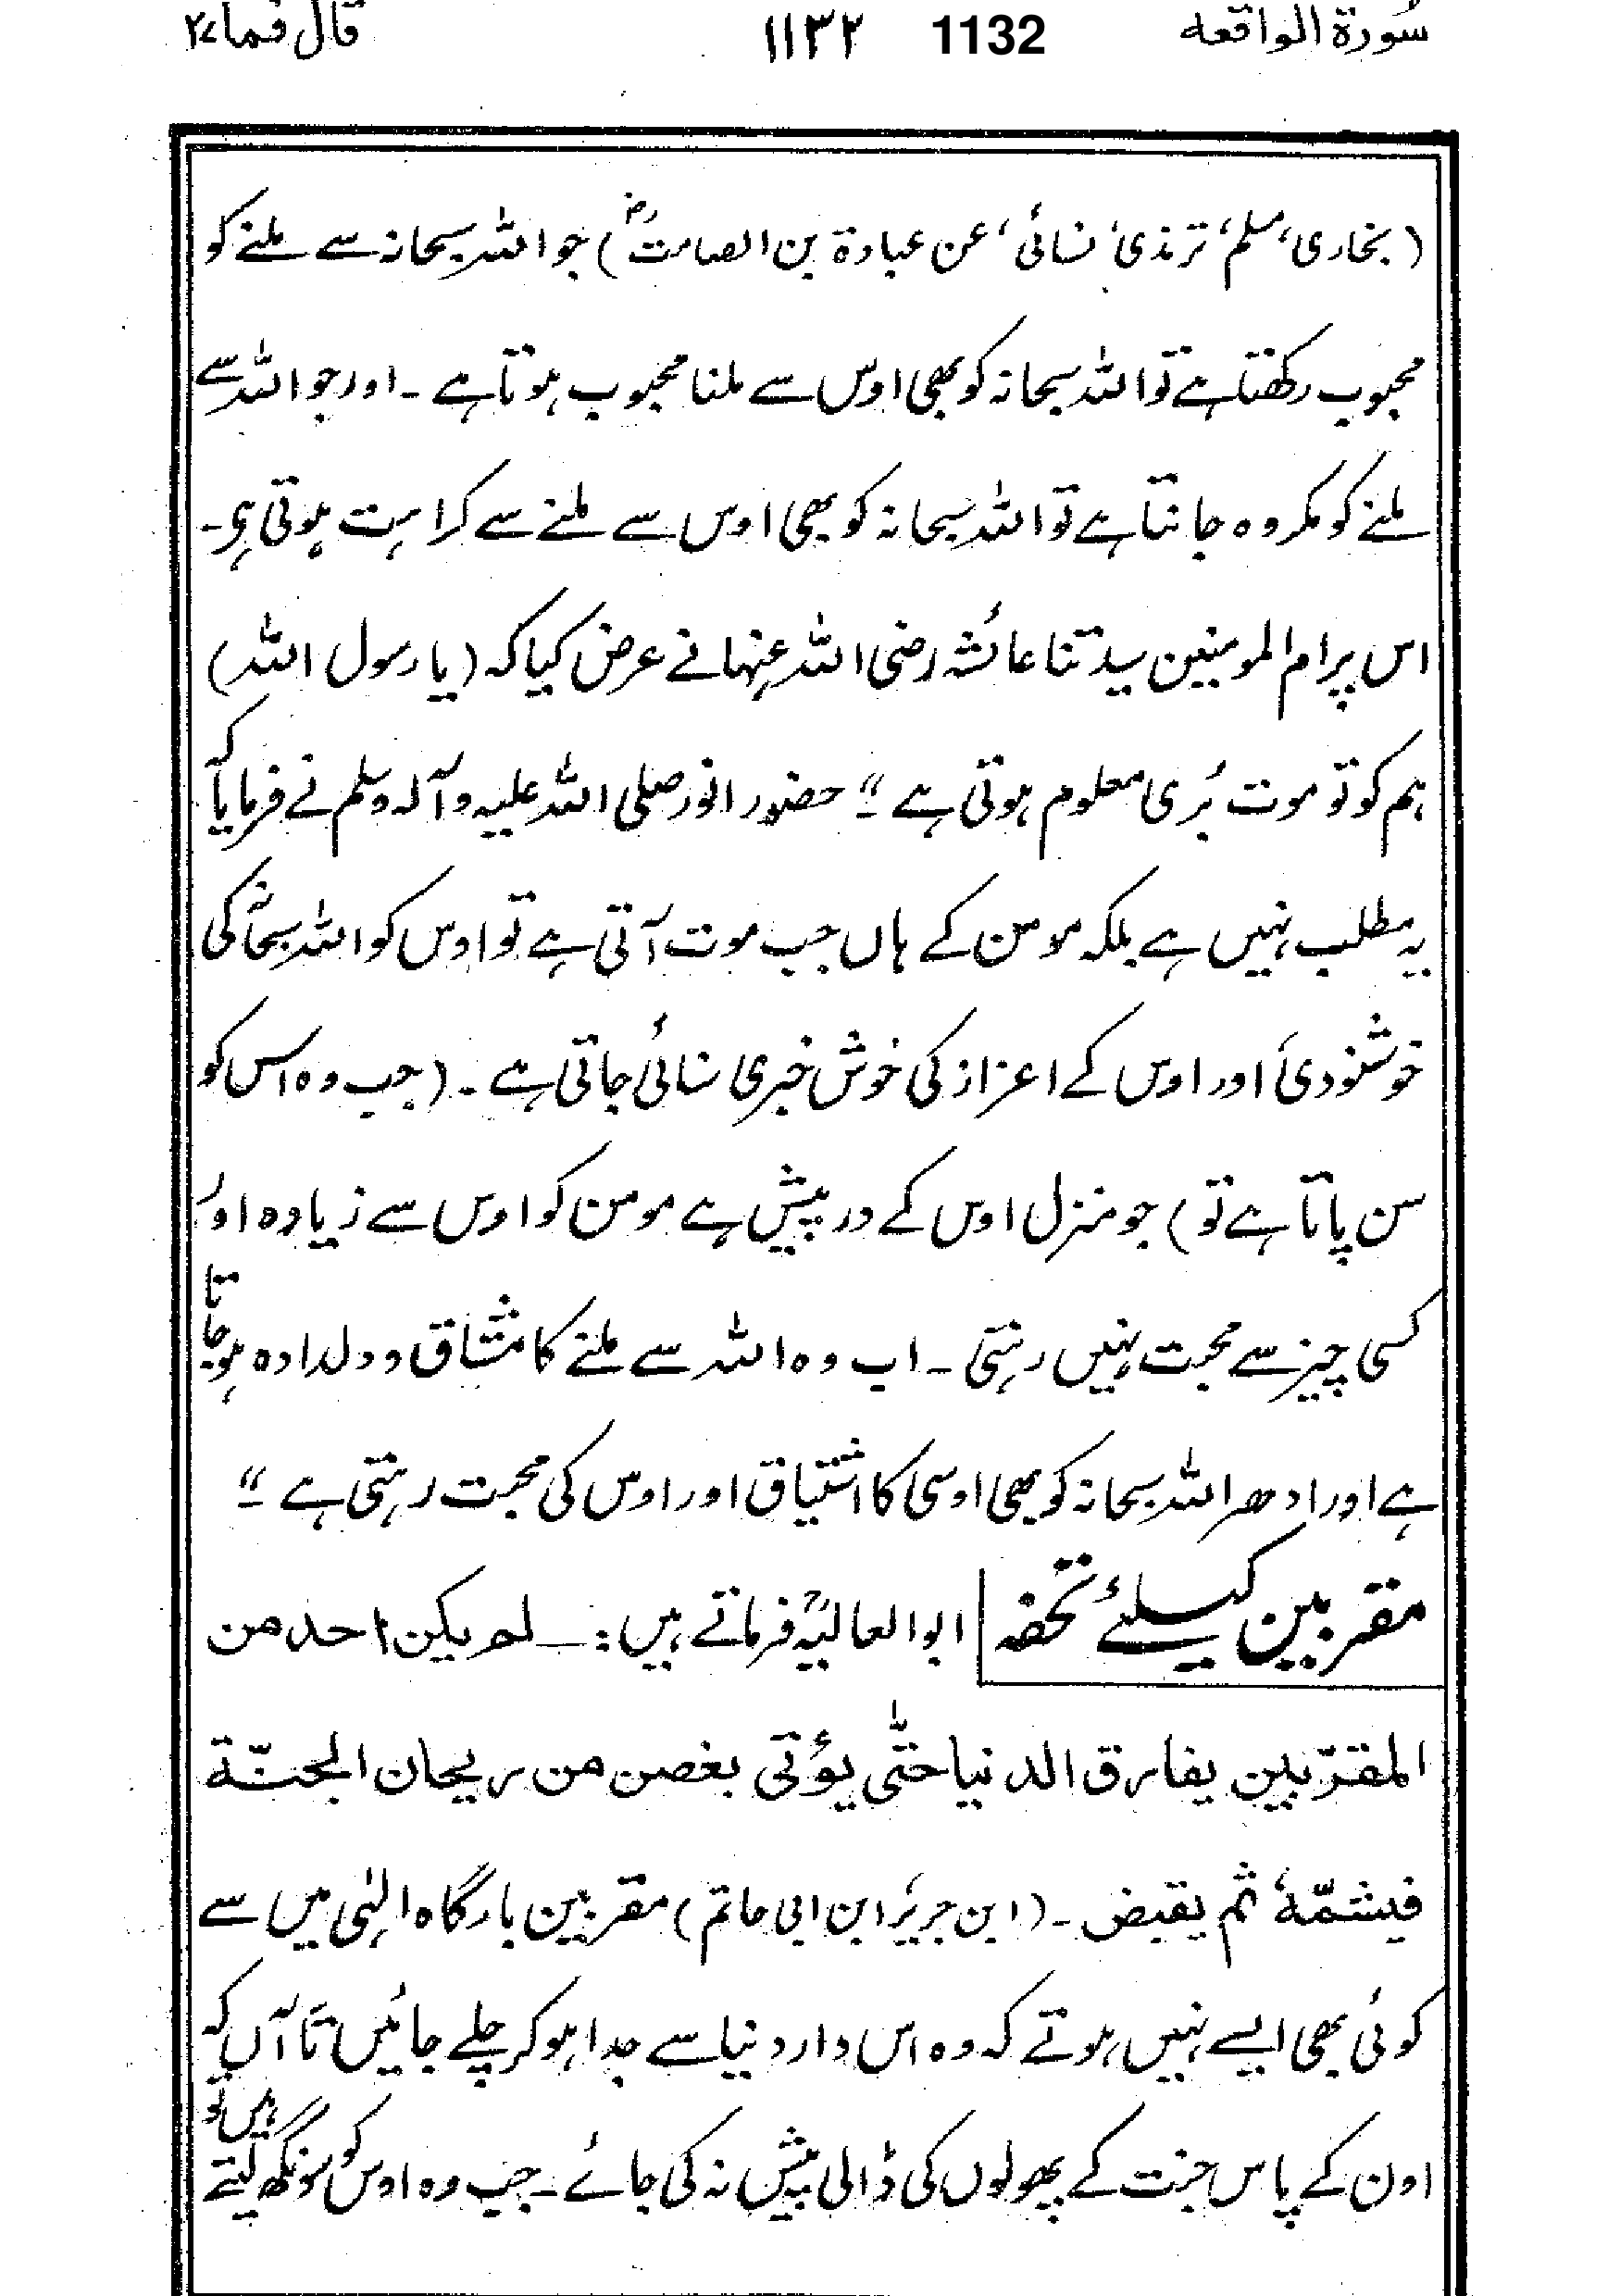 سُورة الواقعه ١١٣٢ 1132 قال فما ٢٧
(بخاری، مسلم، ترمذی، نسائی، عن عبادة بن الصامتؓ) جو اللہ سبحانہ سے ملنے کو
محبوب رکھتا ہے تو اللہ سبحانہ کو بھی اوس سے ملنا محبوب ہوتا ہے ۔ اور جو اللہ سے
ملنے کو مکروہ جانتا ہے تو اللہ سبحانہ کو بھی اوس سے ملنے سے کراہت ہوتی ہی۔
اس پر ام المومنین سیدتنا عائشہ رضی اللہ عنہا نے عرض کیا کہ (یا رسول اللہ)
ہم کو تو موت بُری معلوم ہوتی ہے ۔" حضور انور صلی اللہ علیہ و آلہ وسلم نے فرمایا کہ
یہ مطلب نہیں ہے بلکہ مومن کے ہاں جب موت آتی ہے تو اوس کو اللہ سبحانہ کی
خوشنودی، اور اوس کے اعزاز کی خوش خبری سنائی جاتی ہے ۔ (جب وہ اس کو
سن پاتا ہے تو) جو منزل اوس کے درپیش ہے مومن کو اوس سے زیادہ اور
کسی چیز سے محبت نہیں رہتی ۔ اب وہ اللہ سے ملنے کا مشتاق و دلدادہ ہو جاتا
ہے اور ادھر اللہ سبحانہ کو بھی اوسی کا اشتیاق اور اوس کی محبت رہتی ہے ۔"
مقربین کیلئے تحفہ ابوالعالیہؒ فرماتے ہیں :۔ لم یکن احد من
المقرّبین یفارق الدنیا حتّٰی یؤتی بغصن من ریحان الجنّة
فیشمّهٗ ثم یقبض ۔ (ابن جریر، ابن ابی حاتم) مقربین بارگاہ الٰہی میں سے
کوئی بھی ایسے نہیں ہوتے کہ وہ اس دار دنیا سے جدا ہو کر چلے جائیں تا آں کہ
اون کے پاس جنت کے پھولوں کی ڈالی پیش نہ کی جائے ۔ جب وہ اوس کو سونگھ لیتے ہیں تو